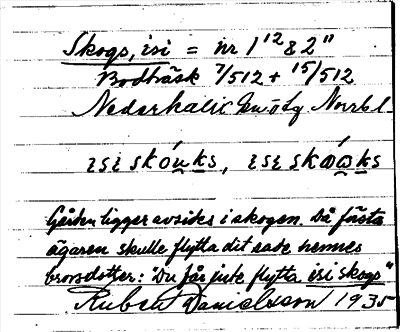 Skogs, isi = nr 1¹² & 2"
Bodträsk 7/512 + 15/512
Nederkalix Norrb.
isi skóuks, isi skóωks
Gården ligger avsides i skogen. Då första
ägaren skulle flytta dit sade hennes
brorsdotter: "Du får inte flytta isi skogs"
Rubert Danielsson 1935